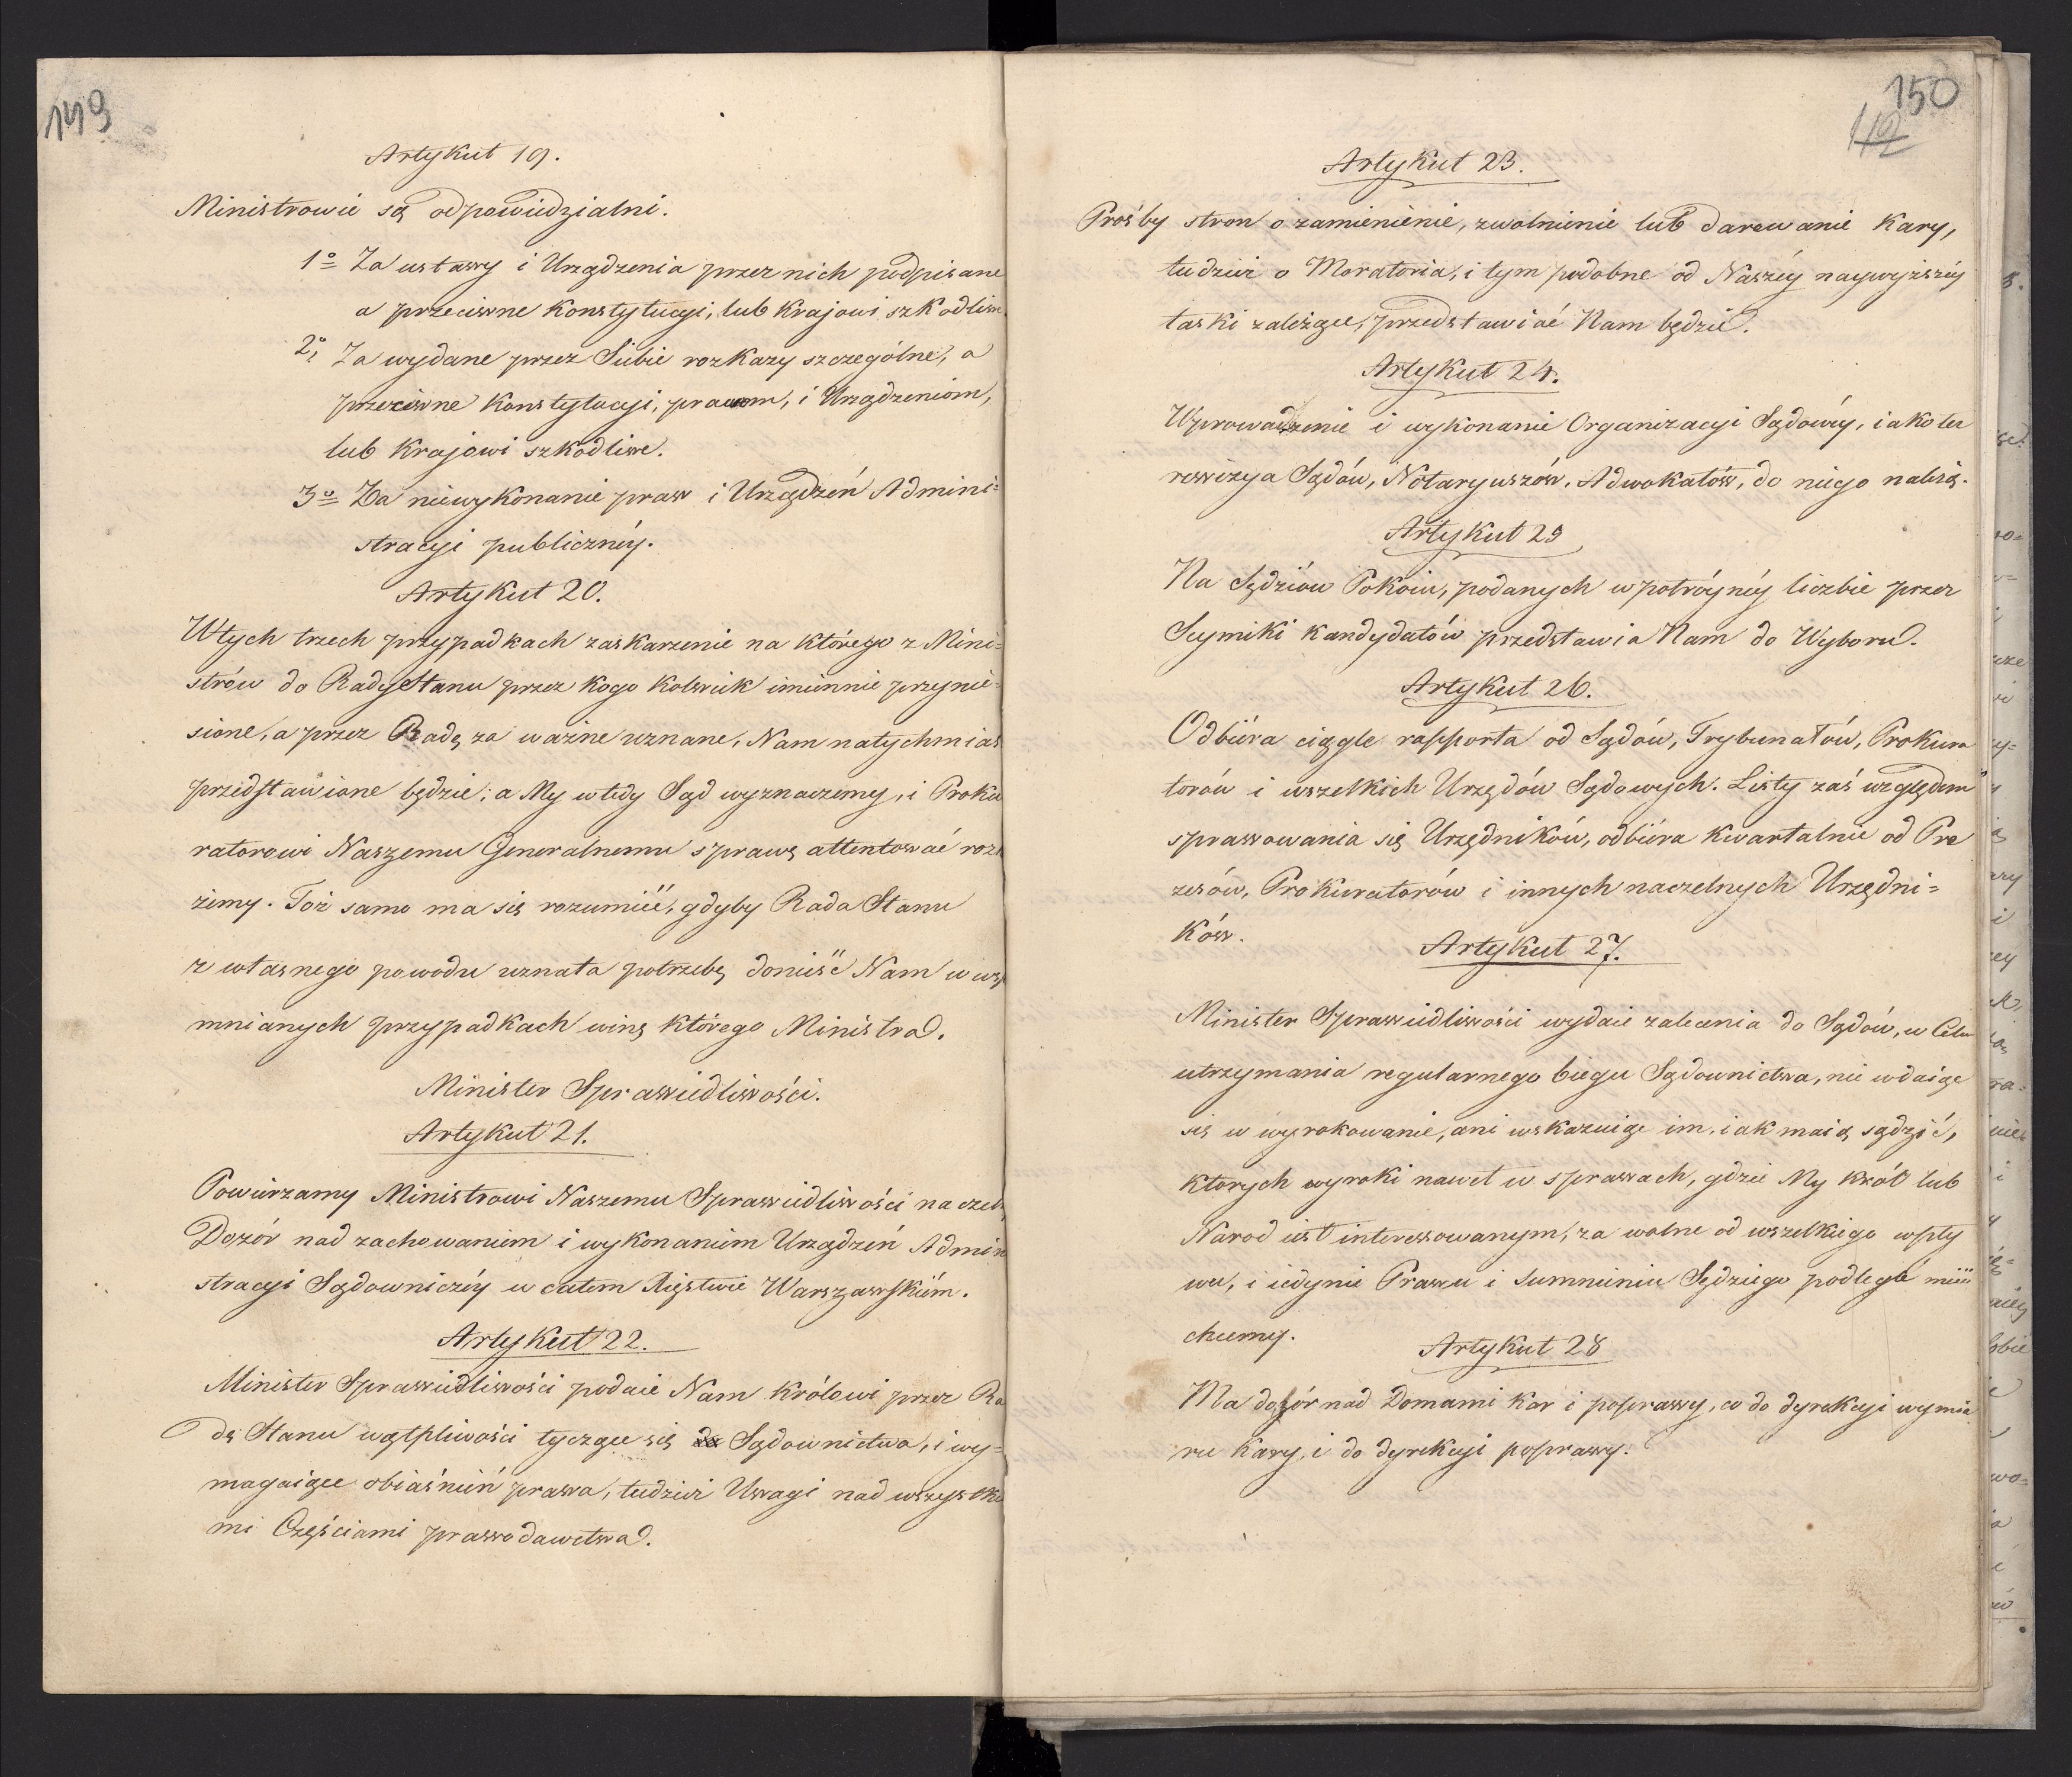 149
Artykuł 19.
Ministrowie są odpowiedzialni.
1º Za ustawy i Urządzenia przez nich podpisane
a przeciwne Konstytucyi, lub Krajowi szkodliwe
2º, Za wydane przez Siebie rozkazy szczególne, a
przeciwne Konstytucyi, prawom, i Urządzeniom,
lub Krajowi szkodliwe.
3º Za niewykonanie praw i Urządzeń Admini=
stracyi publiczney.
Artykuł 20.
W tych trzech przypadkach zaskarzenie na którego z Mini=
strów do Rady Stanu przez kogo kolwiek imiennie przynie=
sione, a przez Radę za ważne uznane, Nam natychmias
przedstawione będzie; a My wtedy Sąd wyznaczemy, i Proku
ratorowi Naszemu Generalnemu sprawę attentować roz
żemy. Toż samo ma się rozumieć, gdyby Rada Stanu
z własnego powodu uznała potrzebę donieść Nam w wsp
mnianych przypadkach winę którego Ministra.
Minister Sprawiedliwości.
Artykuł 21.
Powierzamy Ministrowi Naszemu Sprawiedliwości naczeln
Dozór nad zachowaniem i wykonaniem Urządzeń Admini
stracyi Sądowniczéy w całem Xięstwie Warszawskiém.
Artykuł 22.
Minister Sprawiedliwości podaie Nam Królowi przez Ra
dę Stanu wątpliwości tyczące się Sądownictwa, i wy=
magaiące obiaśnień prawa, tudzież Uwagi nad wszystkie
mi Częściami prawodawctwa.
150
112
Artykuł 23.
Prośby stron o zamienienie, zwolnienie lub darowanie Kary,
tudzież o Moratoria, i tym podobne od Naszéy naywyższéy
łaski zależące, przedstawiać Nam będzie.
Artykuł 24.
Wprowadzenie i wykonanie Organizacyi Sądowéy, iako też
rewizya Sądów, Notaryuszów, Adwokatów, do niego należą.
Artykuł 25
Na Sędziów Pokoiu, podanych w potróynéy liczbie przez
Seymiki Kandydatów przedstawia Nam do Wyboru.
Artykuł 26.
Odbiéra ciągle rapporta od Sądów, Trybunałów, Prokura
torów i wszelkich Urzędów Sądowych. Listy zaś względem
sprawowania się Urzędników, odbiéra kwartalnie od Pre
zesów, Prokuratorów i innych naczelnych Urzędni=
ków.
Artykuł 27.
Minister Sprawiedliwości wydaie zalecenia do Sądów, w Celu
utrzymania regularnego biegu Sądownictwa, nie wdaiąc
się w wyrokowanie, ani wskazuiąc im, iak maią sądzić,
których wyroki nawet w sprawach, gdzie My Król lub
Naród iest interessowanym, za wolne od wszelkiego wpły
wu, i iedynie Prawu i Sumnieniu Sędziego podległe mieć
chcemy.
Artykuł 28
Ma dozór nad Domami Kar i poprawy, co do dyrekcyi wymia
ru Kary, i do dyrekcyi poprawy.